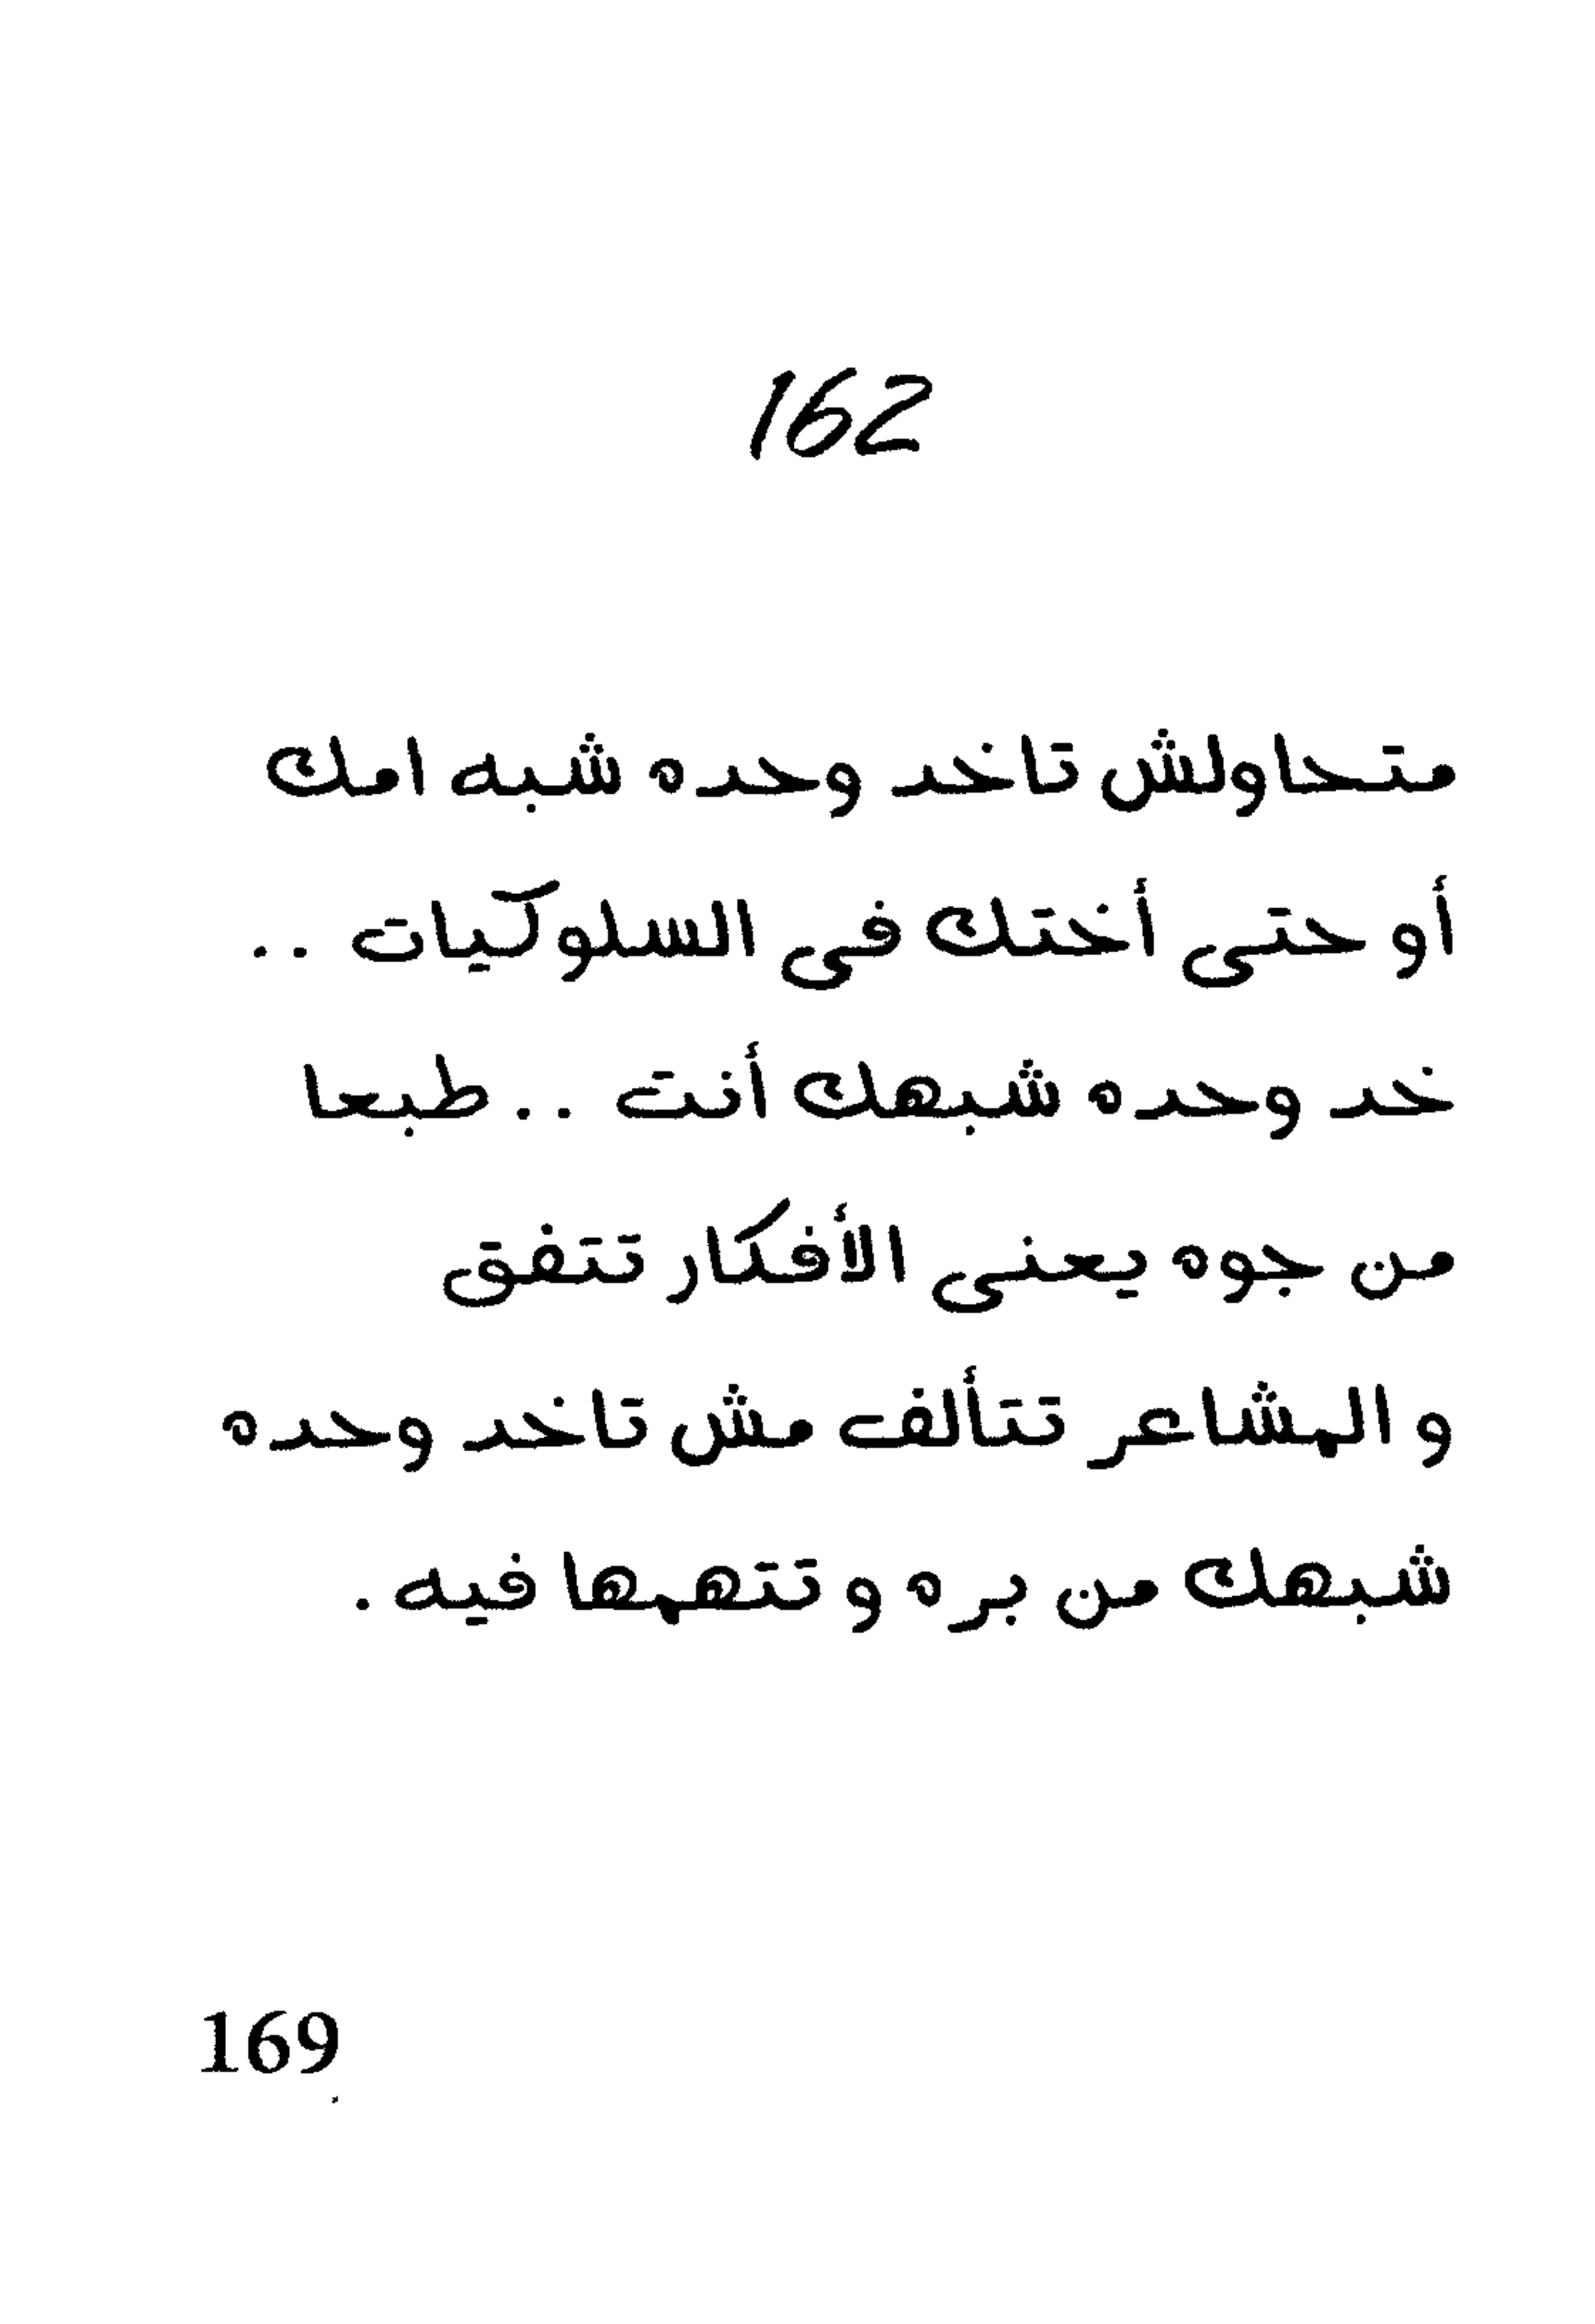 162
متحاولش تاخد وحده شبه امك
أو حتى أختك فى السلوكيات ..
خد وحده شبهك أنت .. طبعا
من جوه يعنى الأفكار تتفق
و المشاعر تتألف مش تاخد وحده
شبهك من بره و تتهمها فيه .
169